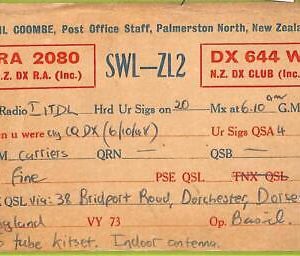 IL COOMBE, Post Office Staff, Palmerston North, New Zeala
RA 2080
.Z. DX R.A. (Inc.)
SWL-ZL2
DX 644 W
N.Z. DX CLUB (Inc.)
Radio I1TDL Hrd Ur Sigs on 20 Mx at 6.10 am G.M
n u were cq CQ DX (6/10/48) Ur Sigs QSA 4
M carriers QRN — QSB —
Fine PSE QSL TNX QSL
QSL via: 38 Bridport Road, Dorchester, Dorse
ngland VY 73 Op. Basil.
tube kitset. Indoor antenna.